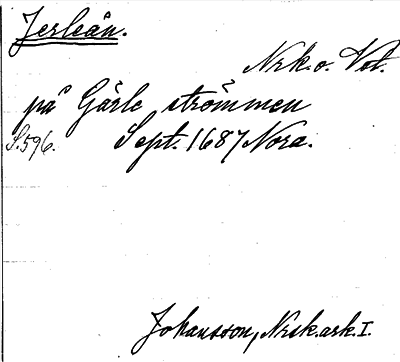 Jerleån.
Nrk. o. Vol.
på Gärle strömmen
S. 596. Sept. 1687 Nora.
Johansson, Norsk. ark. I.